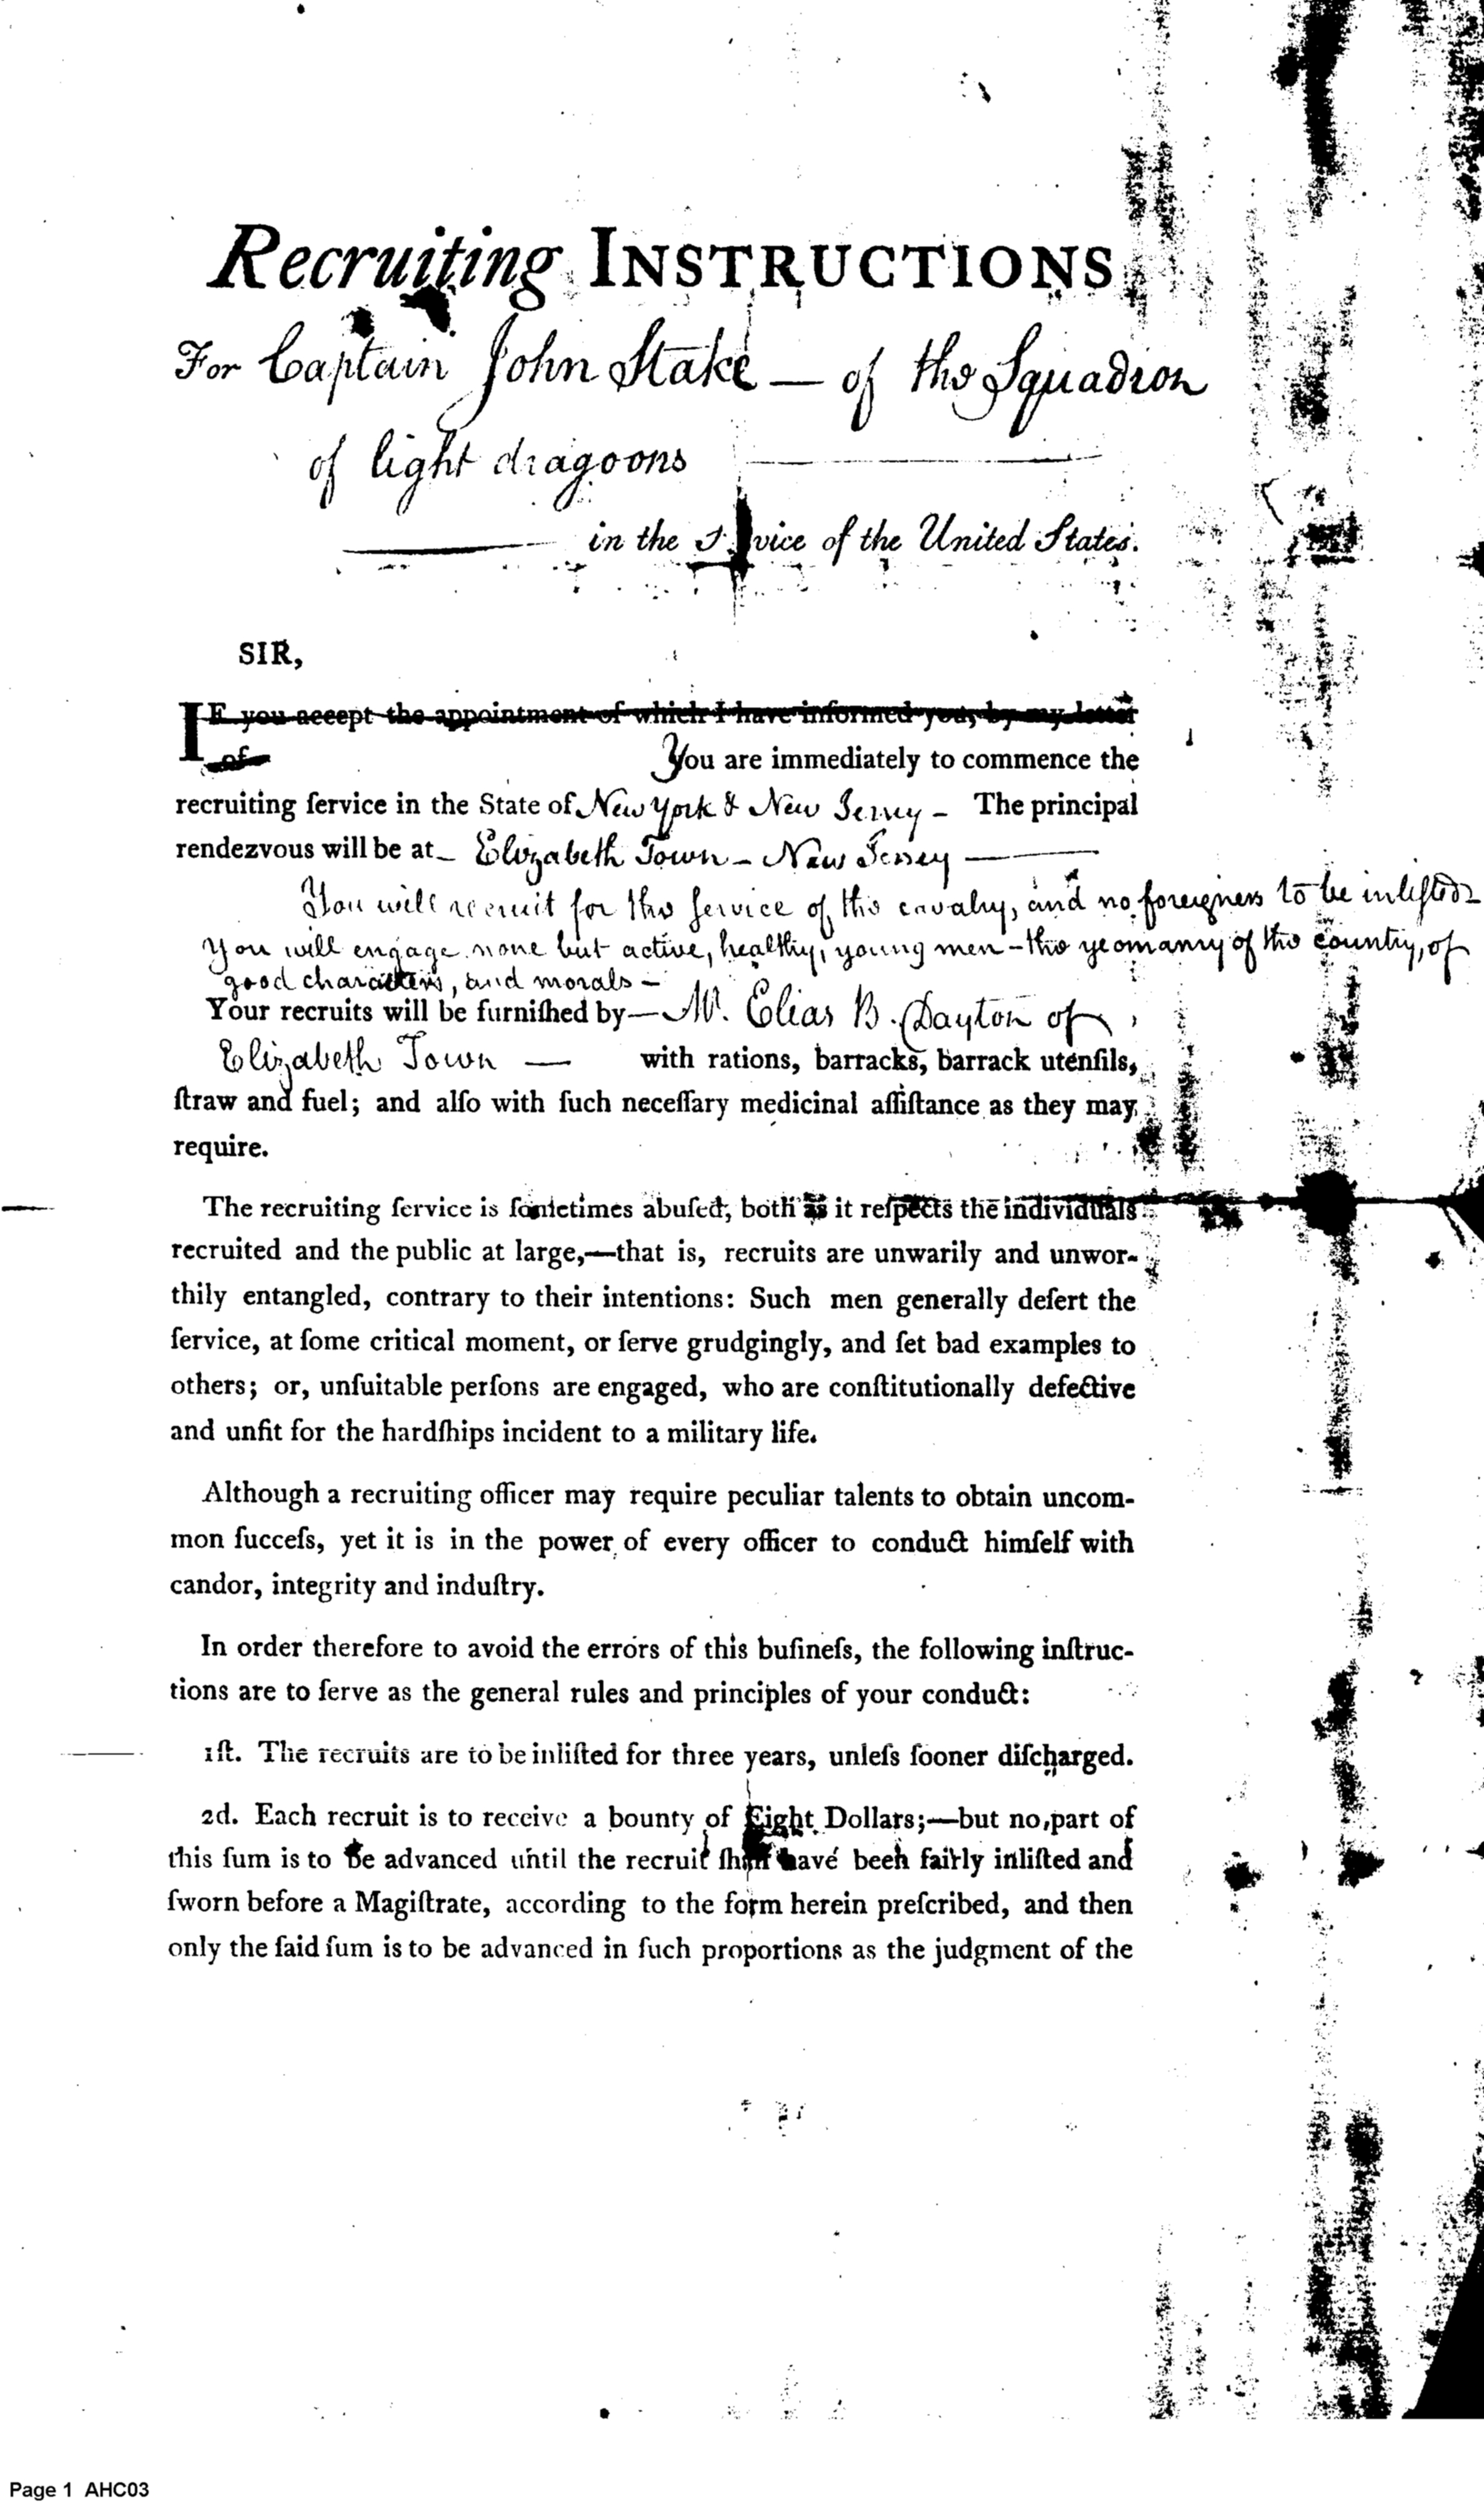 Recruiting INSTRUCTIONS
For Captain John Stake — of the Squadron
of light dragoons
in the Service of the United States.
SIR,
IF you accept the appointment of which I have informed you, by my letter
of You are immediately to commence the
recruiting ſervice in the State of New York & New Jersey - The principal
rendezvous will be at - Elizabeth Town - New Jersey —
You will recruit for the ſervice of the cavalry, and no foreigners to be inliſted
You will engage none but active, healthy, young men - the yeomanry of the country, of
good characters, and morals -
Your recruits will be furniſhed by — Mr. Elias B. Dayton of
Elizabeth Town — with rations, barracks, barrack utenſils,
ſtraw and fuel; and alſo with ſuch neceſſary medicinal aſſiſtance as they may
require.
The recruiting ſervice is ſometimes abuſed, both as it reſpects the individuals
recruited and the public at large,—that is, recruits are unwarily and unwor-
thily entangled, contrary to their intentions: Such men generally deſert the
ſervice, at ſome critical moment, or ſerve grudgingly, and ſet bad examples to
others; or, unſuitable perſons are engaged, who are conſtitutionally defective
and unfit for the hardſhips incident to a military life.
Although a recruiting officer may require peculiar talents to obtain uncom-
mon ſucceſs, yet it is in the power of every officer to conduct himſelf with
candor, integrity and induſtry.
In order therefore to avoid the errors of this buſineſs, the following inſtruc-
tions are to ſerve as the general rules and principles of your conduct:
1ſt. The recruits are to be inliſted for three years, unleſs ſooner diſcharged.
2d. Each recruit is to receive a bounty of Eight Dollars;—but no part of
this ſum is to be advanced until the recruit ſhall have been fairly inliſted and
ſworn before a Magiſtrate, according to the form herein preſcribed, and then
only the ſaid ſum is to be advanced in ſuch proportions as the judgment of the
Page 1 AHC03